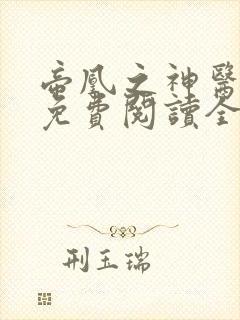 帝凰之神醫
免費閱讀全
刑玉瑞